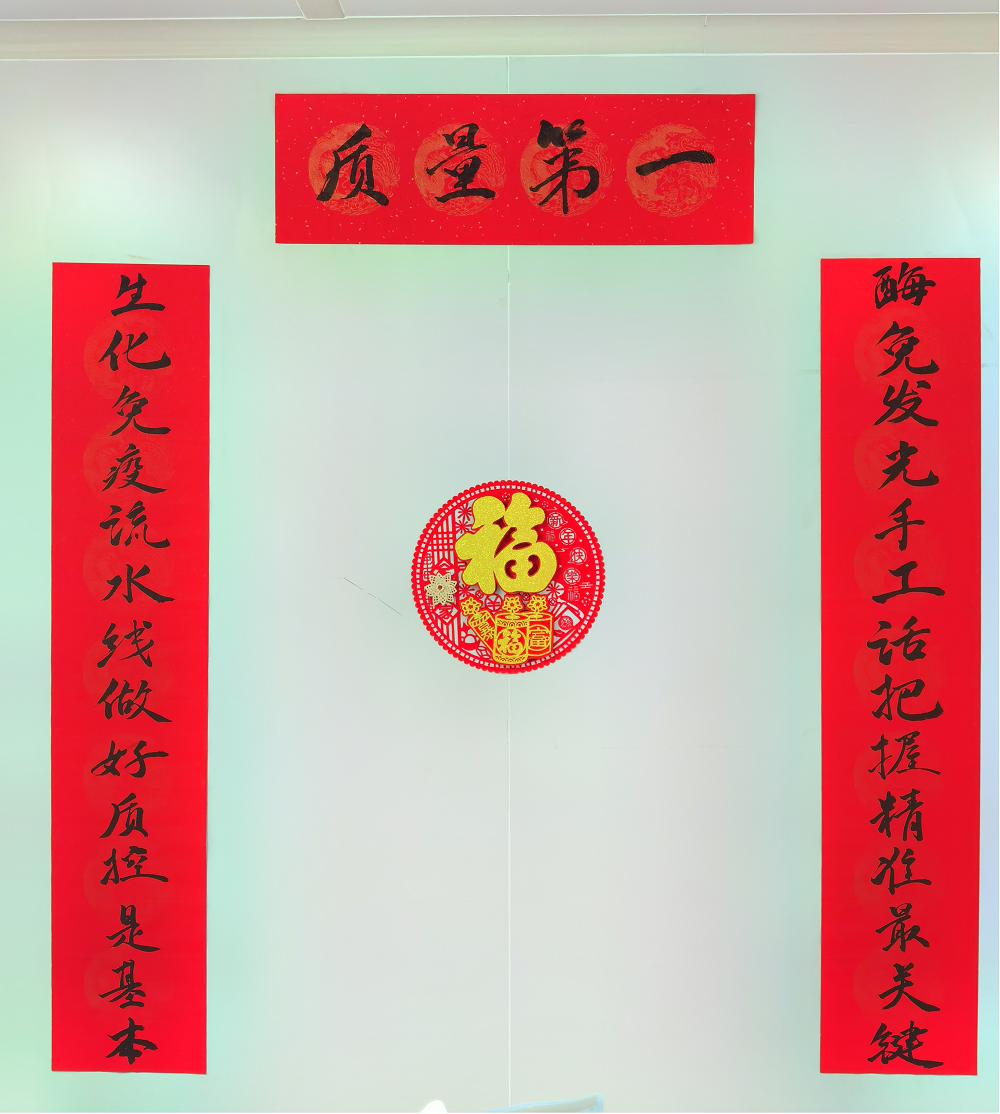 质量第一
生化免疫流水线做好质控是基本
酶免发光手工活把握精准最关键
福
新年快乐
福
富